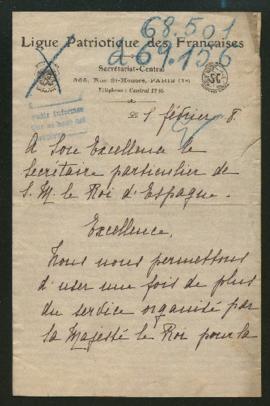 68.501
269.156
Ligue Patriotique des Françaises
Secrétariat-Central
368, Rue St-Honoré, PARIS (1er)
Téléphone : Central
1 février 8.
A Son Excellence le
Secrétaire particulier de
S. M. le Roi d'Espagne.
Excellence,
Nous nous permettons
d'user une fois de plus
du service organisé par
sa Majesté le Roi pour la